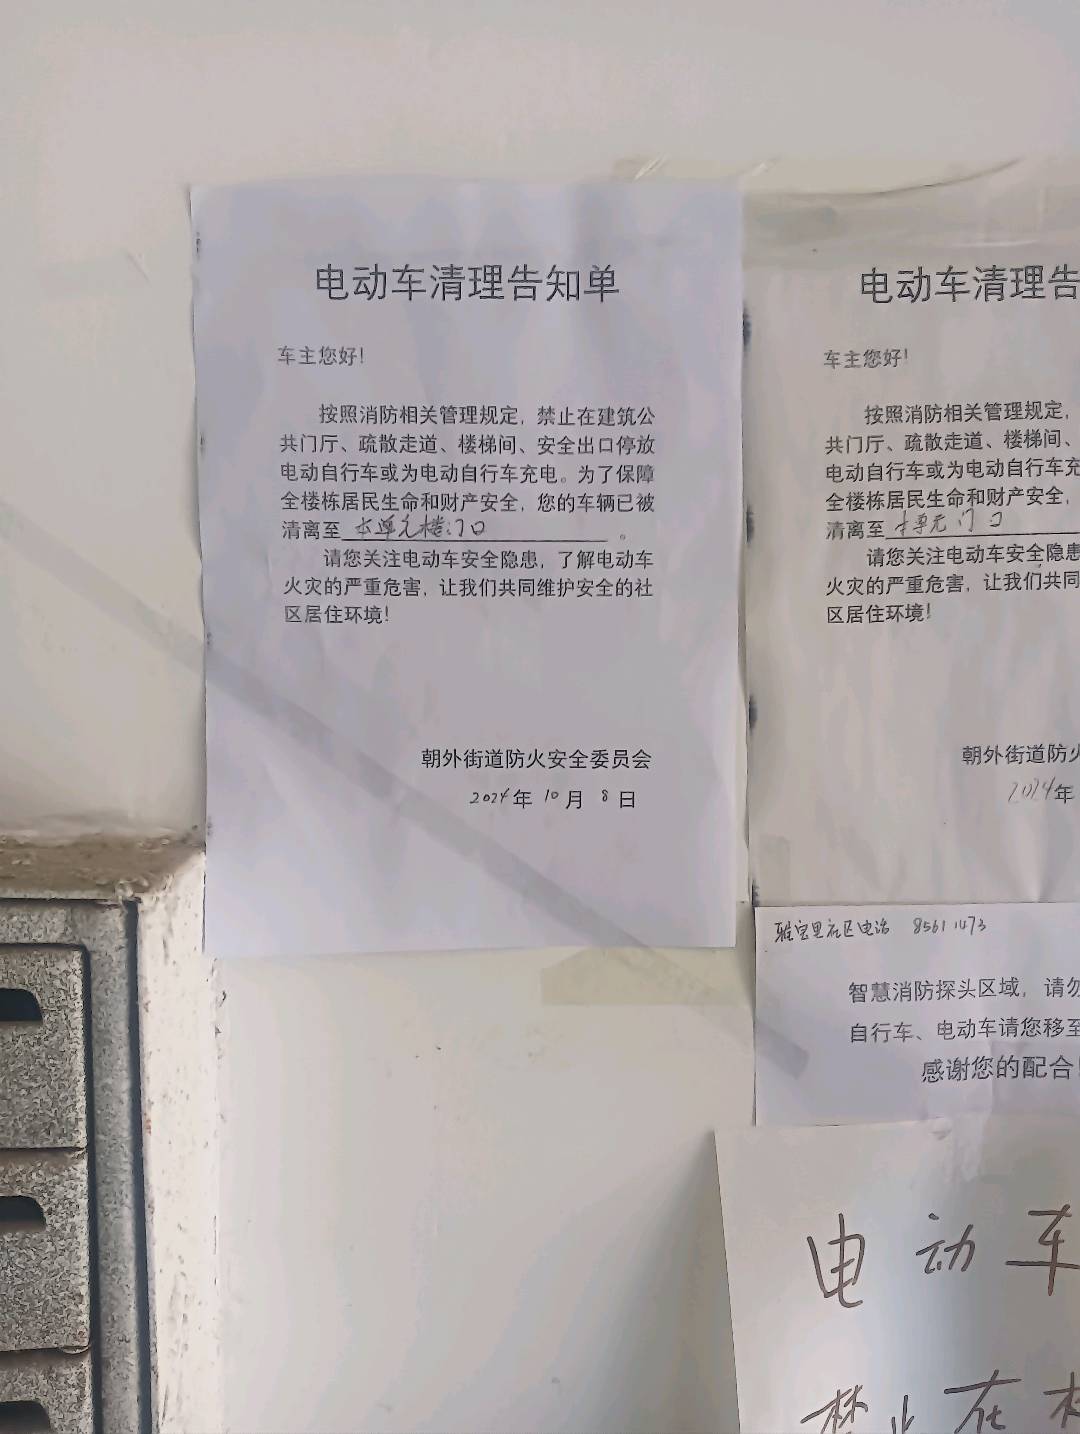 电动车清理告知单
车主您好！
按照消防相关管理规定，禁止在建筑公
共门厅、疏散走道、楼梯间、安全出口停放
电动自行车或为电动自行车充电。为了保障
全楼栋居民生命和财产安全，您的车辆已被
清离至 本单元楼门口 。
请您关注电动车安全隐患，了解电动车
火灾的严重危害，让我们共同维护安全的社
区居住环境！
朝外街道防火安全委员会
2024年 10月 8日
电动车清理告
车主您好！
按照消防相关管理规定，
共门厅、疏散走道、楼梯间、
电动自行车或为电动自行车充
全楼栋居民生命和财产安全，
清离至 本单元门口
请您关注电动车安全隐患
火灾的严重危害，让我们共同
区居住环境！
朝外街道防火
2024年
雅宝里社区电话 8561 1473
智慧消防探头区域，请勿
自行车、电动车请您移至
感谢您的配合！
电动车
禁止在